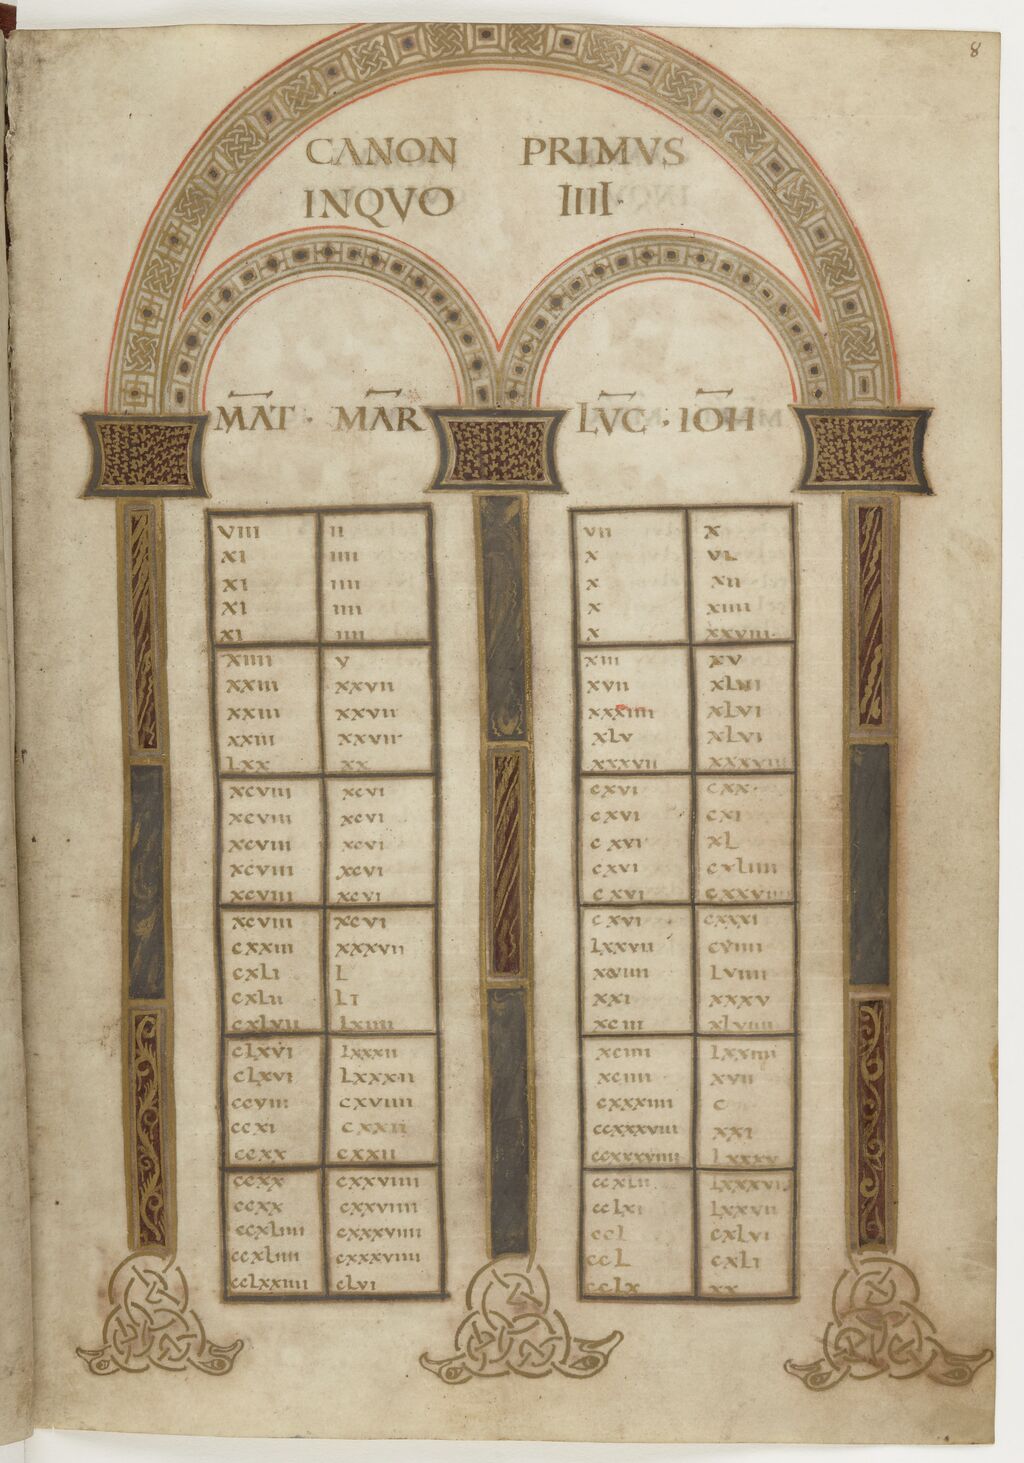 8
CANON PRIMVS
INQVO IIII·
MAT · MAR LVC · IOH
VIII II VII X
XI IIII X VI
XI IIII X XII
XI IIII X XIIII
XI IIII X XXVIII·
XIIII V XIII XV
XXIII XXVII XVII XLVI
XXIII XXVII XXXIIII XLVI
XXIII XXVII XLV XLVI
LXX XX XXXVII XXXVIII
XCVIII XCVI CXVI CXX·
XCVIII XCVI CXVI CXI
XCVIII XCVI CXVI XL
XCVIII XCVI CXVI CXLIIII
XCVIII XCVI CXVI CXXVIIII
XCVIII XCVI CXVI CXXXI
CXXIII XXXVII LXXVII CVIIII
CXLI L LVIIII
CXLII LI XXI XXXV
CXLVII LXIIII XCIII XLVIIII
CLXVI LXXXII XCIIII LXXIIII
CLXVI LXXXII XCIIII XVII
CCVIII CXVIIII CXXXIIII C
CCXI CXXII CCXXXVIII XXI
CCXX CXXII CCXXXVIIII LXXXV
CCXX CXXVIIII CCXLII LXXXVII
CCXX CXXVIIII CCLXI LXXVII
CCXLIIII CXXXVIIII CCL CXLVI
CCXLIIII CXXXVIIII CCL CXLI
CCLXXIIII CLVI CCLX XX